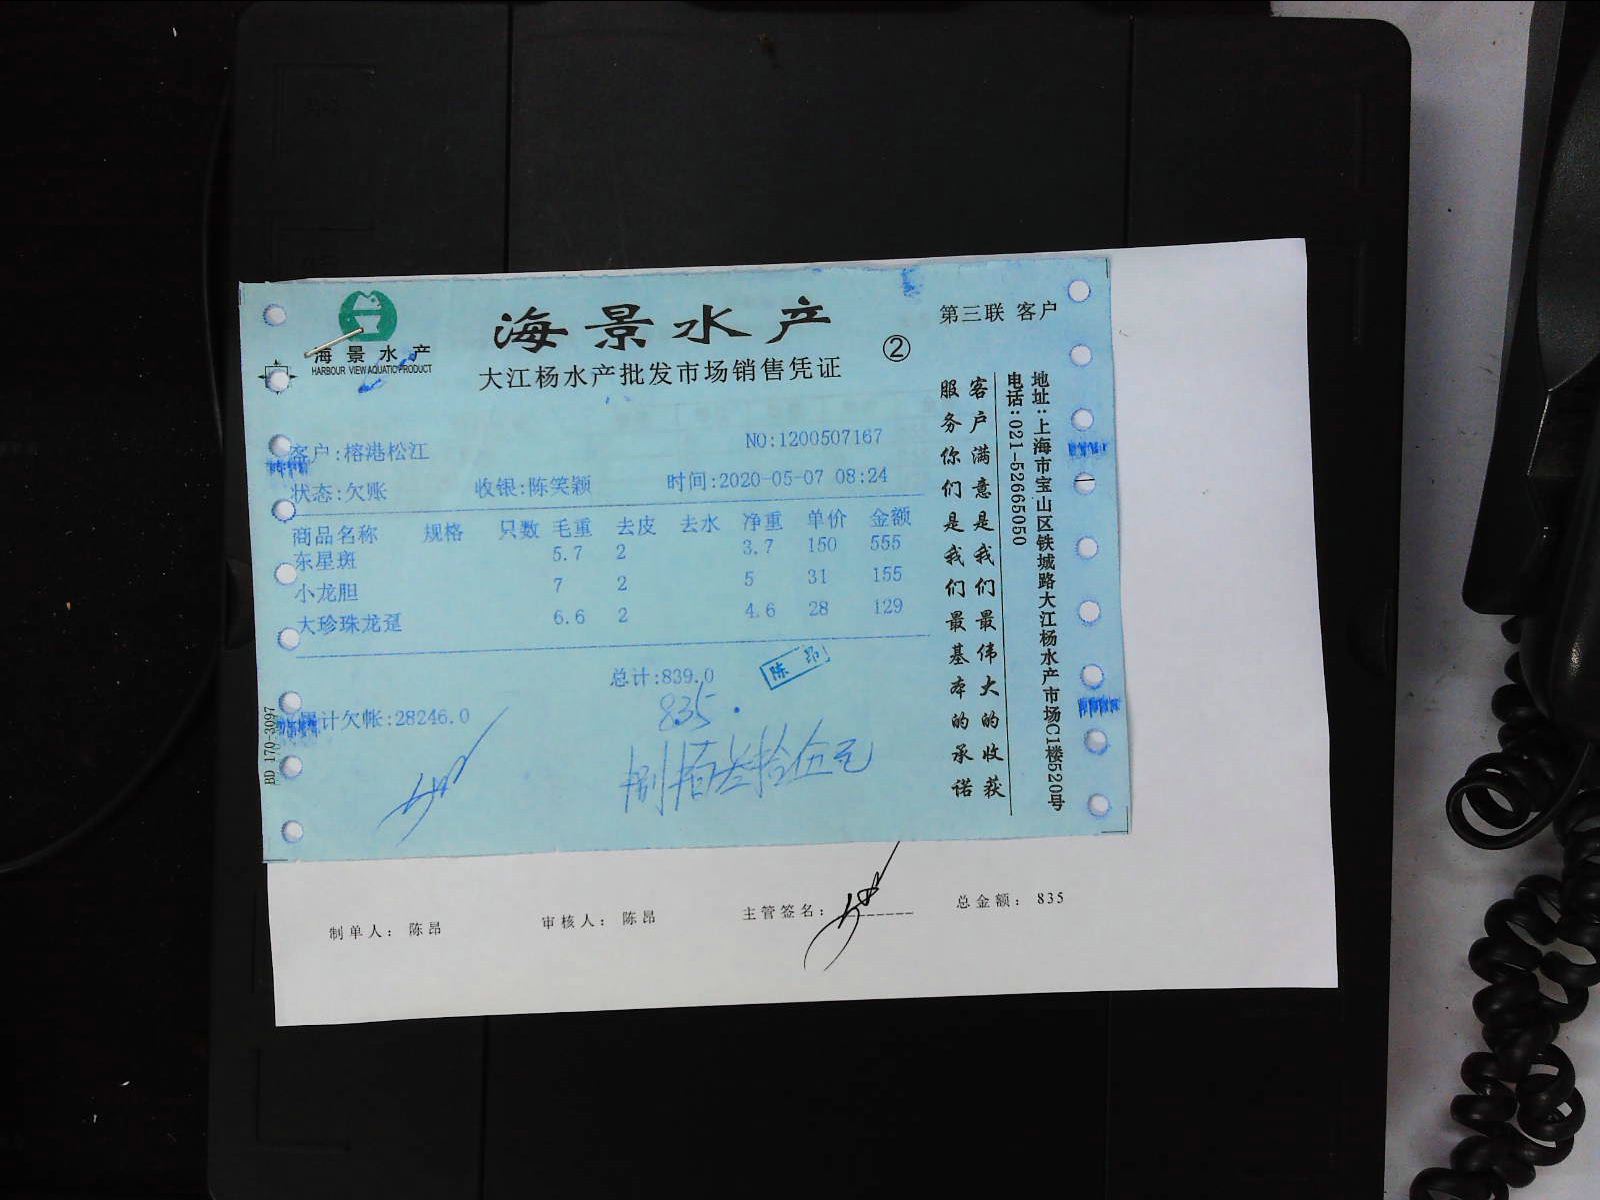 海景水产
HARBOUR VIEW AQUATIC PRODUCT
海景水产
大江杨水产批发市场销售凭证
②
第三联 客户
客户:榕港松江
NO:1200507167
状态:欠账 收银:陈笑颖 时间:2020-05-07 08:24
商品名称 规格 只数 毛重 去皮 去水 净重 单价 金额
东星斑 5.7 2 3.7 150 555
小龙胆 7 2 5 31 155
大珍珠龙趸 6.6 2 4.6 28 129
总计:839.0
陈昂
累计欠帐:28246.0
835.
捌佰叁拾伍元
BD 170-3097
客户满意是我们最伟大的收获
服务你们是我们最基本的承诺
地址:上海市宝山区铁城路大江杨水产市场C1楼520号
电话:021-52665050
制单人: 陈昂 审核人: 陈昂 主管签名: 总金额: 835